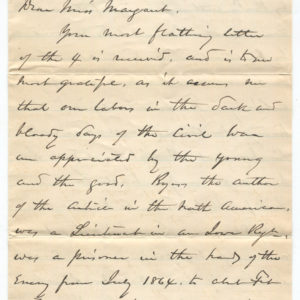 Dear Miss Margaret.
Your most flattering letter
of the 4. is received, and is to me
most grateful, as it assures me
that our labors in the dark and
bloody days of the Civil War
are appreciated by the young
and the good. Byers the author
of the article in the North American,
was a Lieutenant in an Iowa Regt,
was a prisoner in the hands of the
Enemy from July 1864. to abt Feb